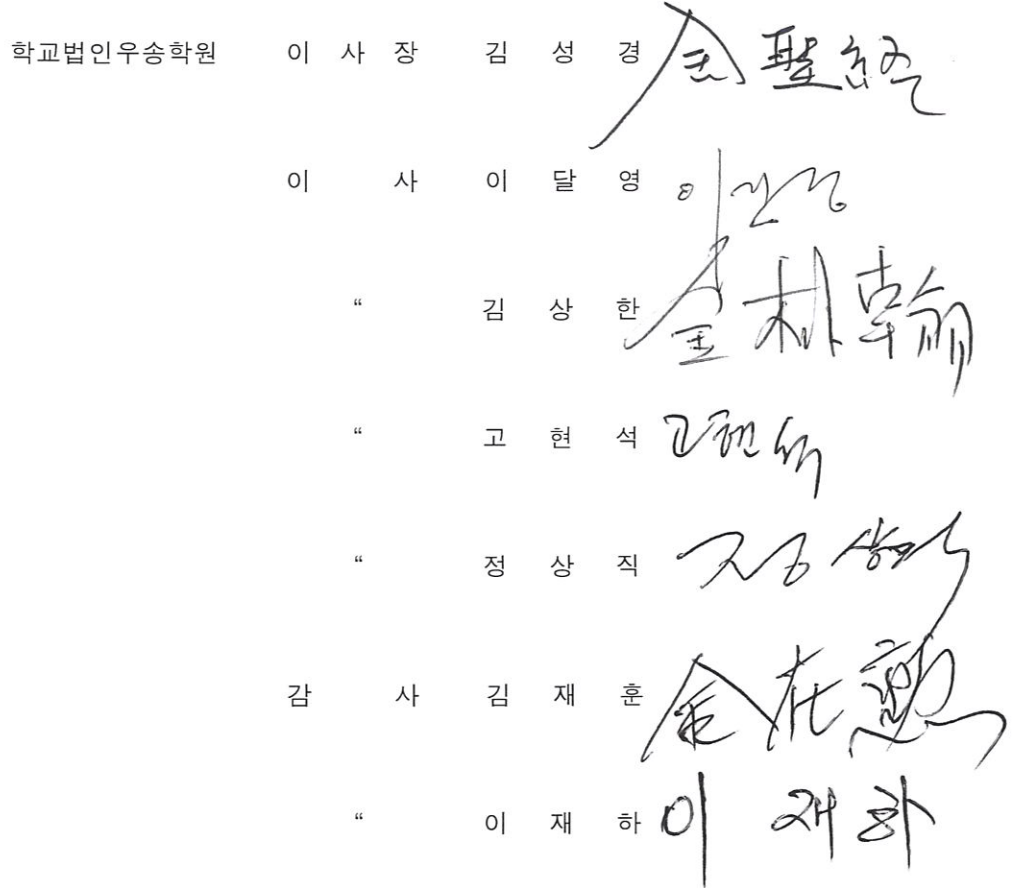 학교법인우송학원 이 사 장 김 성 경 金聖經
이 사 이 달 영 이달영
“ 김 상 한 金相翰
“ 고 현 석 고현석
“ 정 상 직 정상직
감 사 김 재 훈 金在勳
“ 이 재 하 이재하